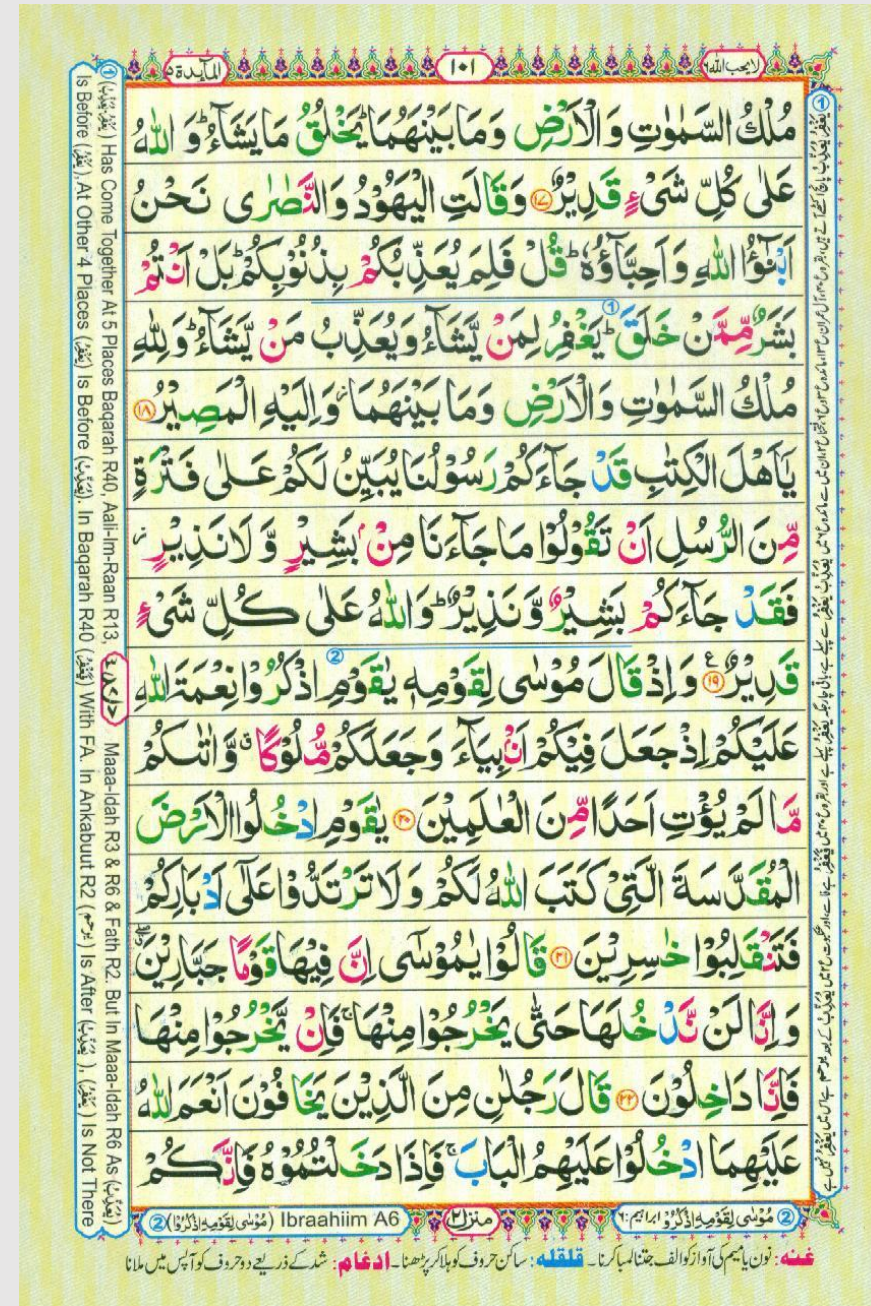 المآئدة ۵
۱۰۱
لا یحب الله ۶
مُلْكُ السَّمٰوٰتِ وَالْاَرْضِ وَمَا بَيْنَهُمَا ؕ يَخْلُقُ مَا يَشَآءُ ؕ وَ اللّٰهُ
عَلٰى كُلِّ شَىْءٍ قَدِيْرٌ ۝۱۷ وَقَالَتِ الْيَهُوْدُ وَالنَّصٰرٰى نَحْنُ
اَبْنٰٓؤُا اللّٰهِ وَاَحِبَّآؤُهٗ ؕ قُلْ فَلِمَ يُعَذِّبُكُمْ بِذُنُوْبِكُمْ ؕ بَلْ اَنْتُمْ
بَشَرٌ مِّمَّنْ خَلَقَ ؕ ① يَغْفِرُ لِمَنْ يَّشَآءُ وَيُعَذِّبُ مَنْ يَّشَآءُ ؕ وَلِلّٰهِ
مُلْكُ السَّمٰوٰتِ وَالْاَرْضِ وَمَا بَيْنَهُمَا ؗ وَاِلَيْهِ الْمَصِيْرُ ۝۱۸
يٰۤاَهْلَ الْكِتٰبِ قَدْ جَآءَكُمْ رَسُوْلُنَا يُبَيِّنُ لَكُمْ عَلٰى فَتْرَةٍ
مِّنَ الرُّسُلِ اَنْ تَقُوْلُوْا مَا جَآءَنَا مِنْۢ بَشِيْرٍ وَّلَا نَذِيْرٍ ؗ
فَقَدْ جَآءَكُمْ بَشِيْرٌ وَّنَذِيْرٌ ؕ وَاللّٰهُ عَلٰى كُلِّ شَىْءٍ
قَدِيْرٌ ۝۱۹ ع وَاِذْ قَالَ ② مُوْسٰى لِقَوْمِهٖ يٰقَوْمِ اذْكُرُوْا نِعْمَةَ اللّٰهِ
عَلَيْكُمْ اِذْ جَعَلَ فِيْكُمْ اَنْۢبِيَآءَ وَجَعَلَكُمْ مُّلُوْكًا ۖق وَّاٰتٰىكُمْ
مَّا لَمْ يُؤْتِ اَحَدًا مِّنَ الْعٰلَمِيْنَ ۝۲۰ يٰقَوْمِ ادْخُلُوا الْاَرْضَ
الْمُقَدَّسَةَ الَّتِىْ كَتَبَ اللّٰهُ لَكُمْ وَلَا تَرْتَدُّوْا عَلٰۤى اَدْبَارِكُمْ
فَتَنْقَلِبُوْا خٰسِرِيْنَ ۝۲۱ قَالُوْا يٰمُوْسٰٓى اِنَّ فِيْهَا قَوْمًا جَبَّارِيْنَ
وَاِنَّا لَنْ نَّدْخُلَهَا حَتّٰى يَخْرُجُوْا مِنْهَا ۚ فَاِنْ يَّخْرُجُوْا مِنْهَا
فَاِنَّا دَاخِلُوْنَ ۝۲۲ قَالَ رَجُلٰنِ مِنَ الَّذِيْنَ يَخَافُوْنَ اَنْعَمَ اللّٰهُ
عَلَيْهِمَا ادْخُلُوْا عَلَيْهِمُ الْبَابَ ۚ فَاِذَا دَخَلْتُمُوْهُ فَاِنَّكُمْ
① (يَغْفِرُ يُعَذِّبُ) Has Come Together At 5 Places Baqarah R40, Aali-Im-Raan R13, Maaa-Idah R3 & R6 & Fath R2. But In Maaa-Idah R6 As (يُعَذِّبُ)
Is Before (يَغْفِرُ). At Other 4 Places (يَغْفِرُ) Is Before (يُعَذِّبُ). In Baqarah R40 (يَغْفِرُ) With FA. In Ankabuut R2 (يرحم) Is After (يُعَذِّبُ), (يَغْفِرُ) Is Not There
② مُوْسٰى لِقَوْمِهِ اذْكُرُوْا ابراہیم:۶
منزل۲
② (مُوْسٰى لِقَوْمِهِ اذْكُرُوْا) Ibraahiim A6
غنه: نون یا میم کی آواز کو الف جتنا لمبا کرنا۔ قلقله: ساکن حروف کو ہلا کر پڑھنا۔ ادغام: شد کے ذریعے دو حروف کو آپس میں ملانا